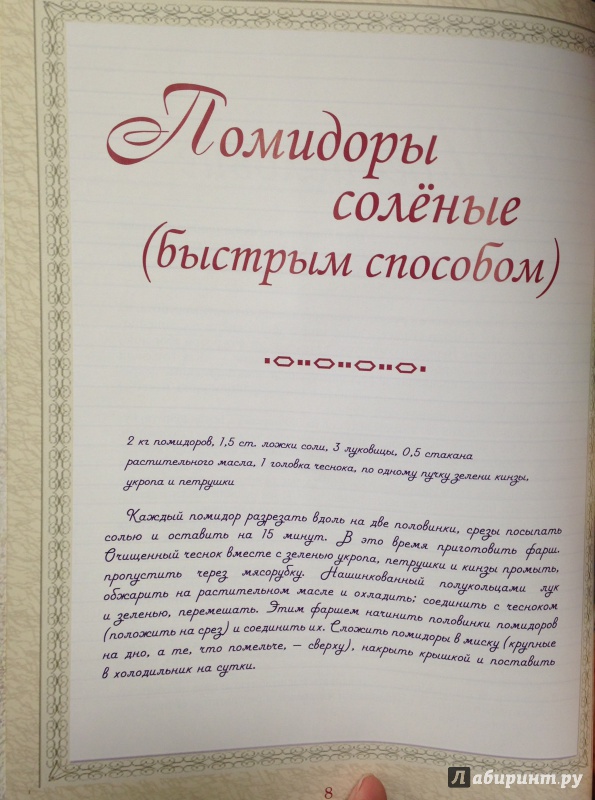 Помидоры
солёные
(быстрым способом)
2 кг помидоров, 1,5 ст. ложки соли, 3 луковицы, 0,5 стакана
растительного масла, 1 головка чеснока, по одному пучку зелени кинзы,
укропа и петрушки
Каждый помидор разрезать вдоль на две половинки, срезы посыпать
солью и оставить на 15 минут. В это время приготовить фарш.
Очищенный чеснок вместе с зеленью укропа, петрушки и кинзы промыть,
пропустить через мясорубку. Нашинкованный полукольцами лук
обжарить на растительном масле и охладить; соединить с чесноком
и зеленью, перемешать. Этим фаршем начинить половинки помидоров
(положить на срез) и соединить их. Сложить помидоры в миску (крупные
на дно, а те, что помельче, – сверху), накрыть крышкой и поставить
в холодильник на сутки.
8
Лабиринт.ру